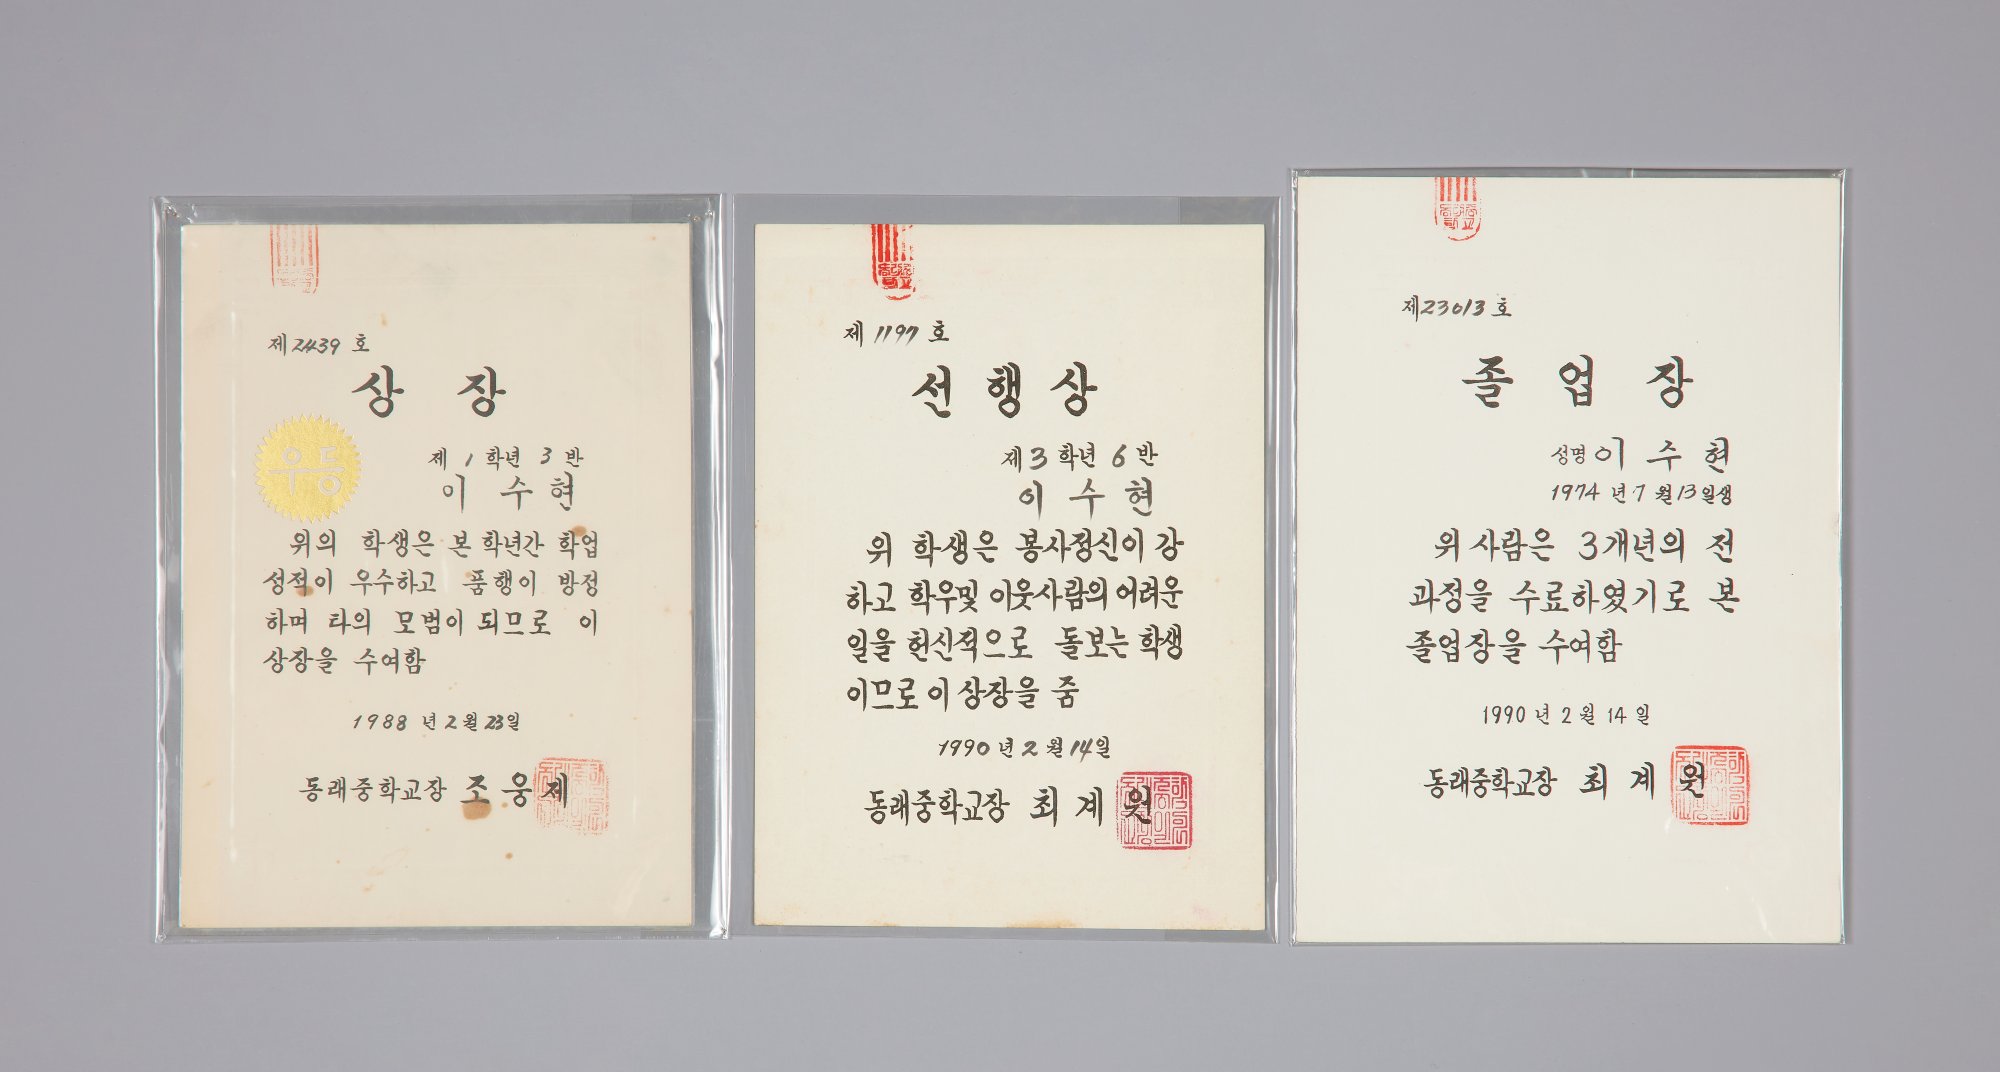 제2439 호
상 장
우등
제 1 학년 3 반
이 수 현
위의 학생은 본 학년간 학업
성적이 우수하고 품행이 방정
하며 타의 모범이 되므로 이
상장을 수여함
1988 년 2 월 23일
동래중학교장 조 웅 제
제 1197 호
선 행 상
제3 학년 6 반
이 수 현
위 학생은 봉사정신이 강
하고 학우및 이웃사람의 어려운
일을 헌신적으로 돌보는 학생
이므로 이 상장을 줌
1990 년 2 월 14일
동래중학교장 최 계 원
제23013 호
졸 업 장
성명 이 수 현
1974 년 7 월 13 일생
위 사람은 3개년의 전
과정을 수료하였기로 본
졸업장을 수여함
1990 년 2 월 14 일
동래중학교장 최 계 원